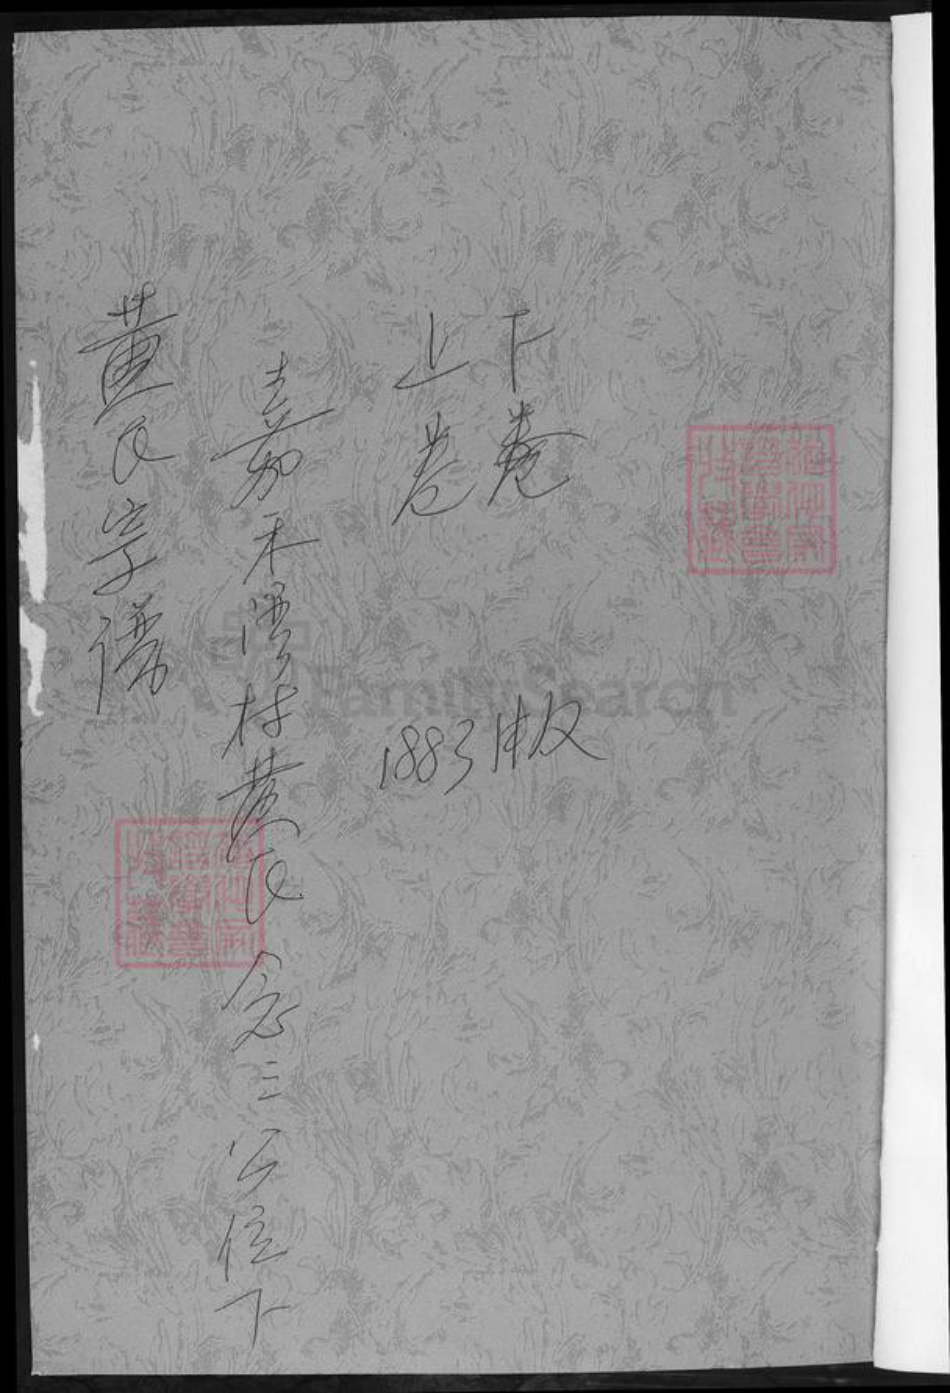 黄氏宗谱
嘉禾湾村黄氏念三公位下
上卷
下卷
1883版
FamilySearch